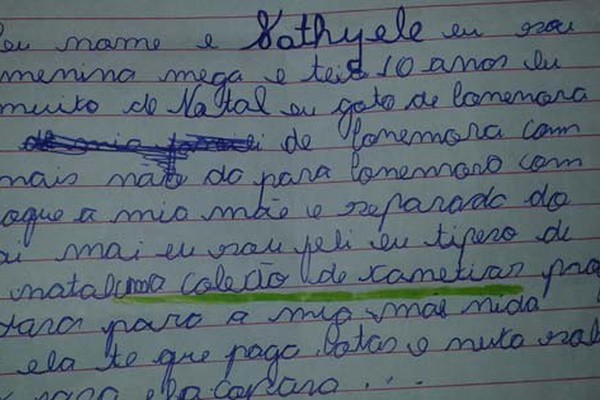 eu name e Kathyele eu sou
menina mega e teis 10 anos eu
muito de Natal eu goto de lomemora
de lomemora com
mais nato do para lomemoro com
oque a mio mãe e separado do
mai eu sou feli eu tipero de
natal uma coleção de cametias pra
para a mio mãe mida
ela te que pago lotas e muto
para ela conpara . . .